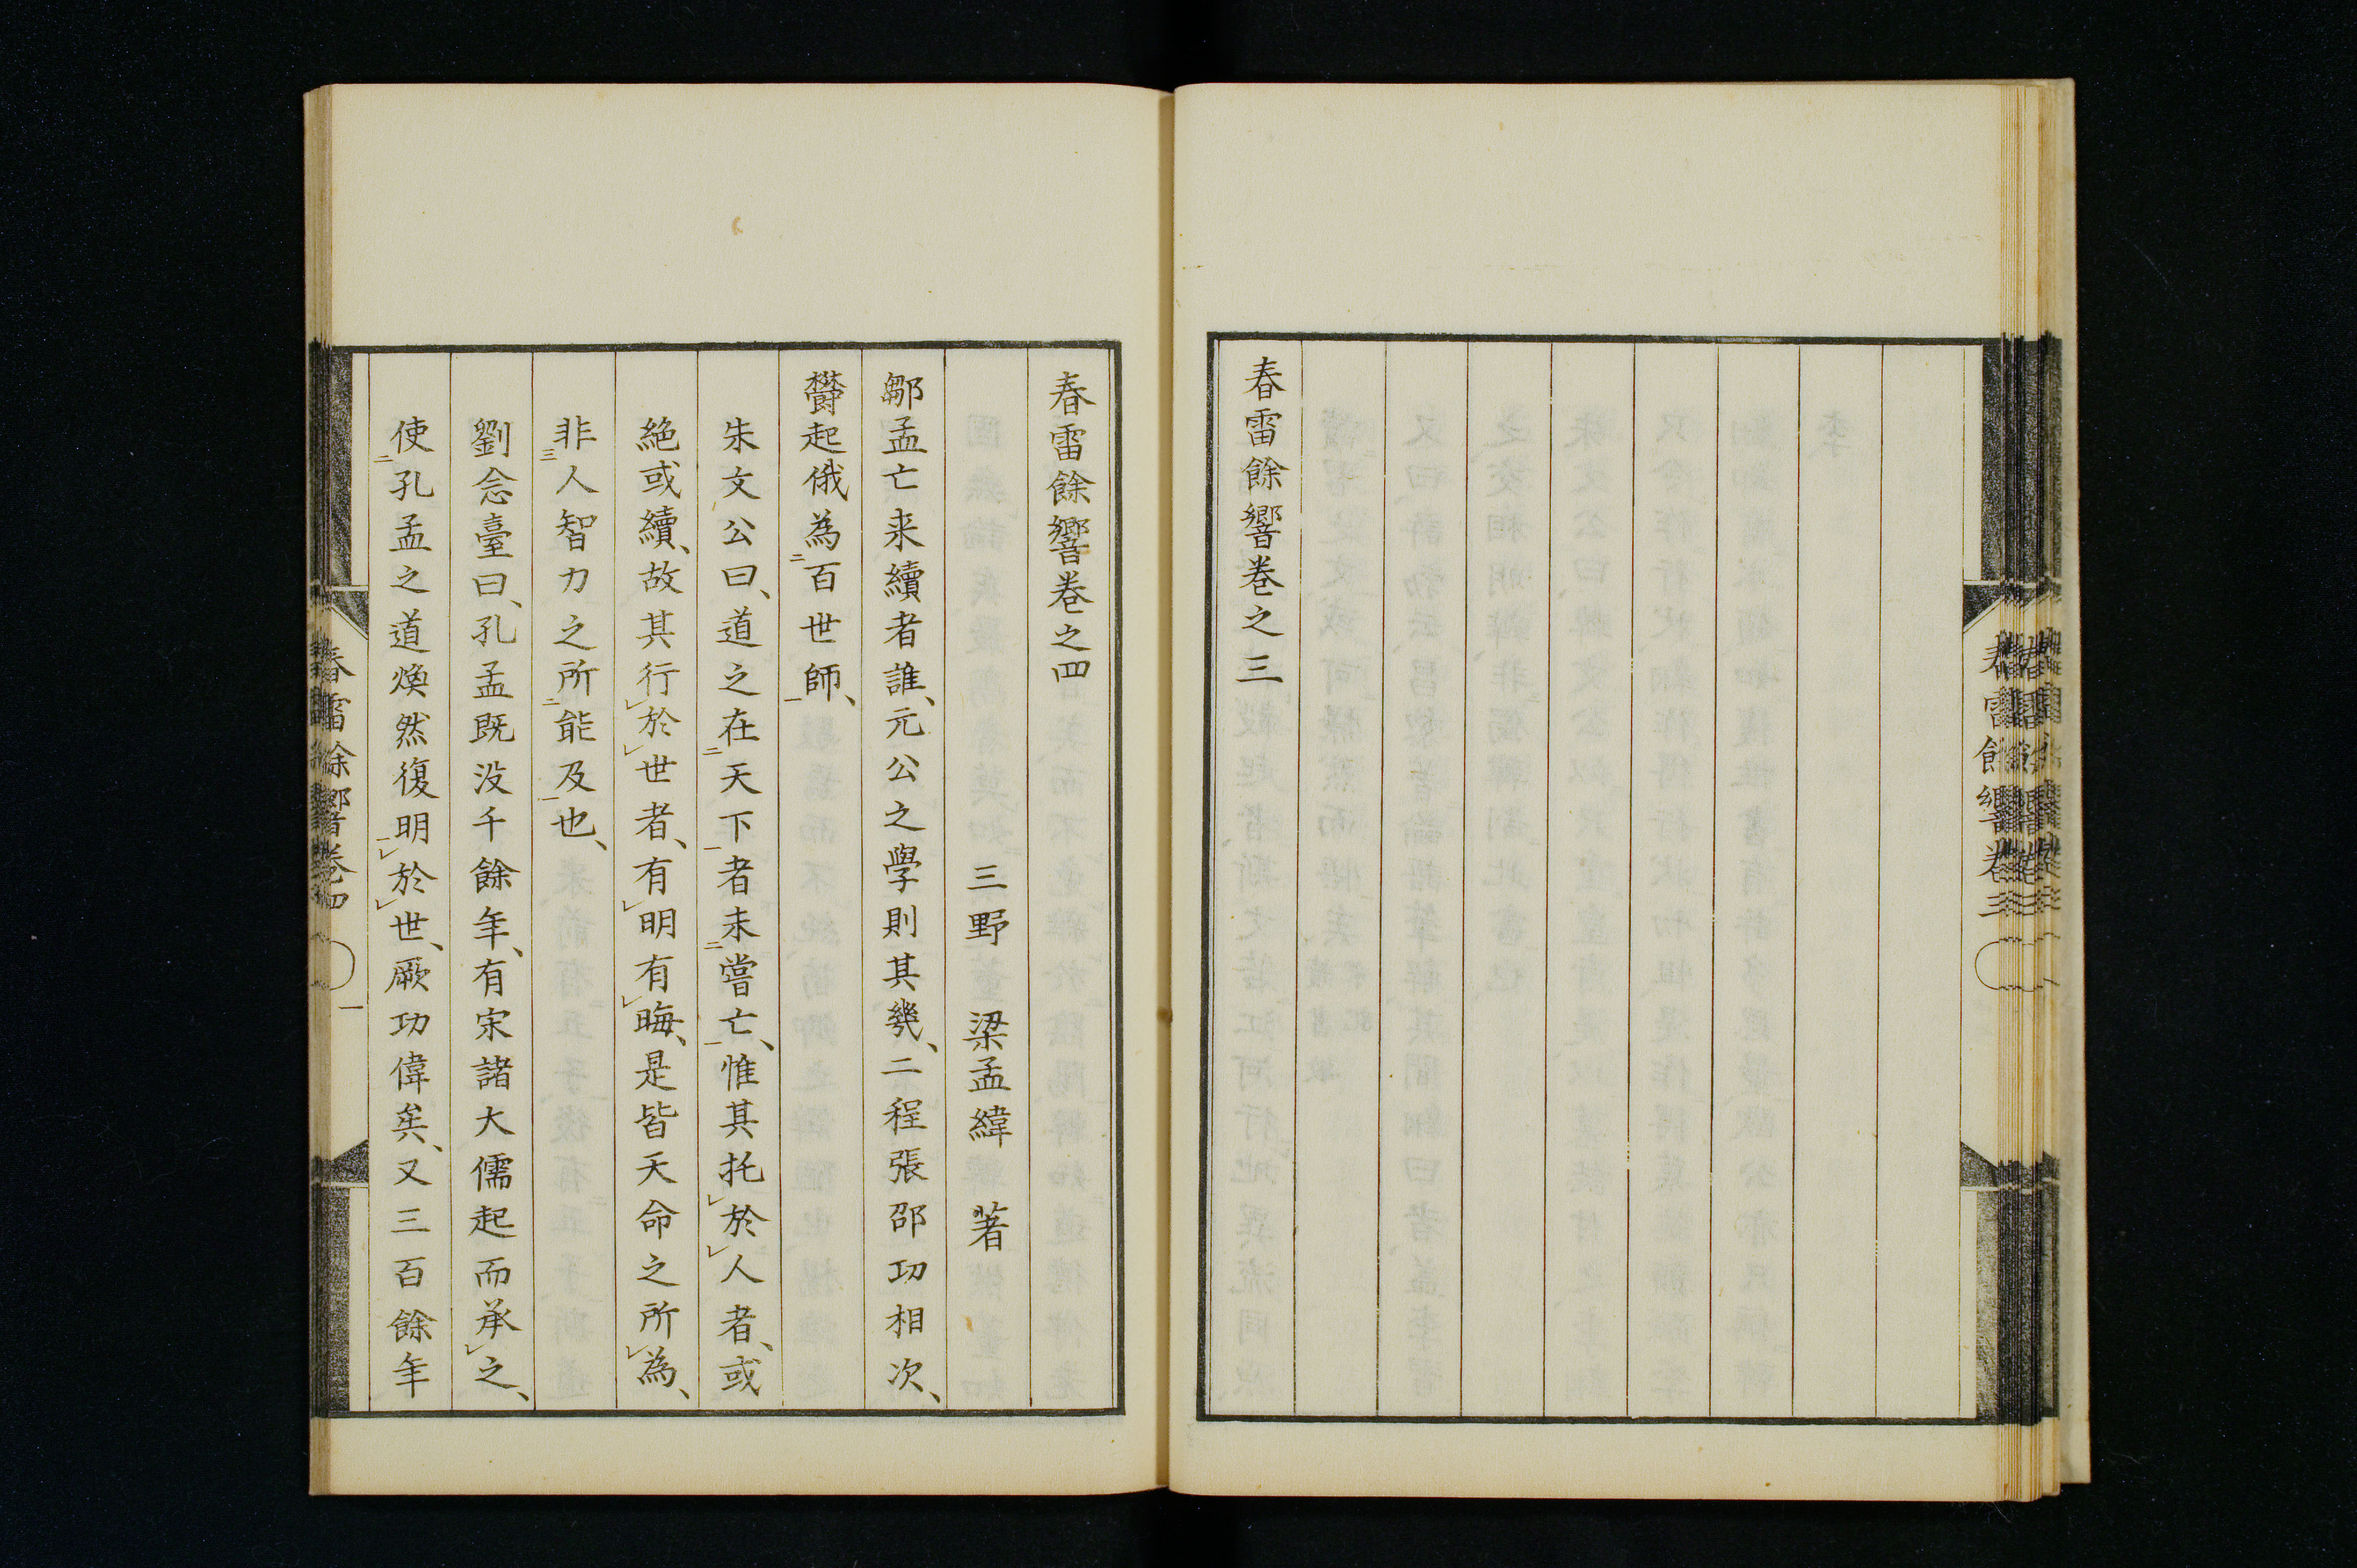 春雷餘響卷之三
春雷餘響卷之四
三野 梁孟緯 著
鄒孟亡来續者誰、元公之學則其幾、二程張邵功相次、
欝起俄為百世師、
朱文公曰、道之在天下者未嘗亡、惟其托於人者、或
絶或續、故其行於世者、有明有晦、是皆天命之所為、
非人智力之所能及也、
劉念臺曰、孔孟既没千餘年、有宋諸大儒起而承之、
使孔孟之道煥然復明於世、厥功偉矣、又三百餘年
春雷餘響卷四 一